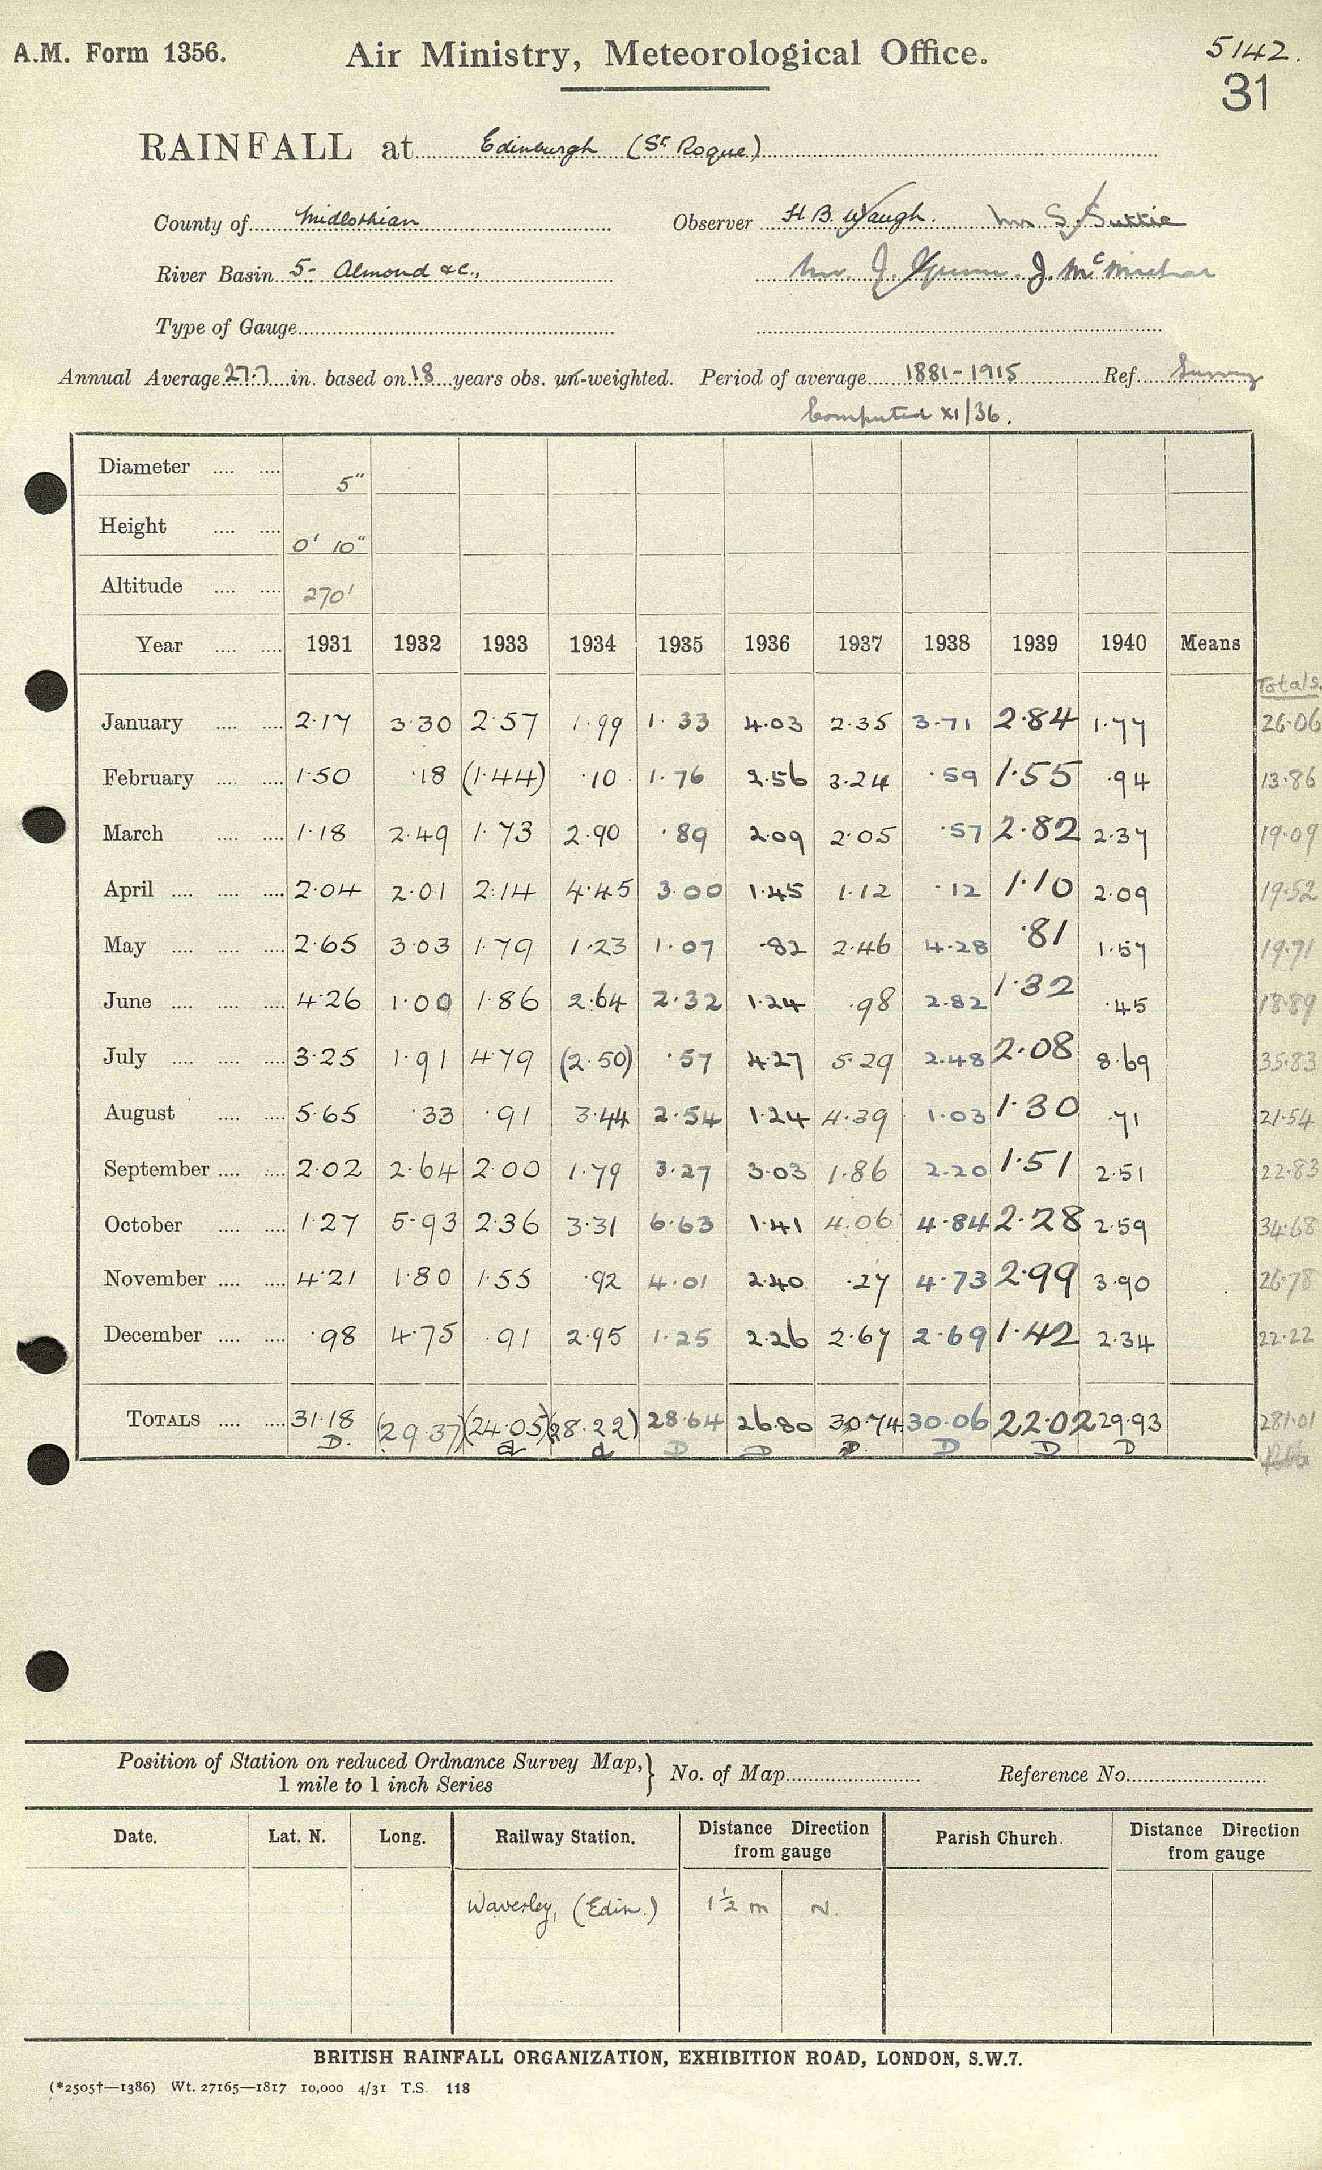 A.M. Form 1356. Air Ministry, Meteorological Office. 5142.
31
RAINFALL at Edinburgh (St Roque)
County of Midlothian Observer H B Waugh. Mr S. Suttie
River Basin 5- Almond &c., Mr J. J. McMichar
Type of Gauge
Annual Average 27.7 in. based on 18 years obs. un-weighted. Period of average 1881-1915 Ref. Survey
Computed XI/36.
Diameter 5"
Height 0' 10"
Altitude 270'
Year 1931 1932 1933 1934 1935 1936 1937 1938 1939 1940 Means
Totals.
January 2.17 3.30 2.57 1.99 1.33 4.03 2.35 3.71 2.84 1.77 26.06
February 1.50 .18 (1.44) .10 1.76 2.56 3.24 .59 1.55 .94 13.86
March 1.18 2.49 1.73 2.90 .89 2.09 2.05 .57 2.82 2.37 19.09
April 2.04 2.01 2.14 4.45 3.00 1.45 1.12 .12 1.10 2.09 19.52
May 2.65 3.03 1.79 1.23 1.07 .82 2.46 4.28 .81 1.57 19.71
June 4.26 1.00 1.86 2.64 2.32 1.24 .98 2.82 1.32 .45 18.89
July 3.25 1.91 4.79 (2.50) .57 4.27 5.29 2.48 2.08 8.69 35.83
August 5.65 .33 .91 3.44 2.54 1.24 4.39 1.03 1.30 .71 21.54
September 2.02 2.64 2.00 1.79 3.27 3.03 1.86 2.20 1.51 2.51 22.83
October 1.27 5.93 2.36 3.31 6.63 1.41 4.06 4.84 2.28 2.59 34.68
November 4.21 1.80 1.55 .92 4.01 2.40 .27 4.73 2.99 3.90 26.78
December .98 4.75 .91 2.95 1.25 2.26 2.67 2.69 1.42 2.34 22.22
TOTALS 31.18 (29.37) (24.05) (28.22) 28.64 26.80 30.74 30.06 22.02 29.93 281.01
D. a a D D D D D D
Position of Station on reduced Ordnance Survey Map,
1 mile to 1 inch Series } No. of Map Reference No.
Date. Lat. N. Long. Railway Station. Distance Direction from gauge Parish Church. Distance Direction from gauge
Waverley, (Edin.) 1½ m N.
BRITISH RAINFALL ORGANIZATION, EXHIBITION ROAD, LONDON, S.W.7.
(*2505†—1386) Wt. 27165—1817 10,000 4/31 T.S. 118